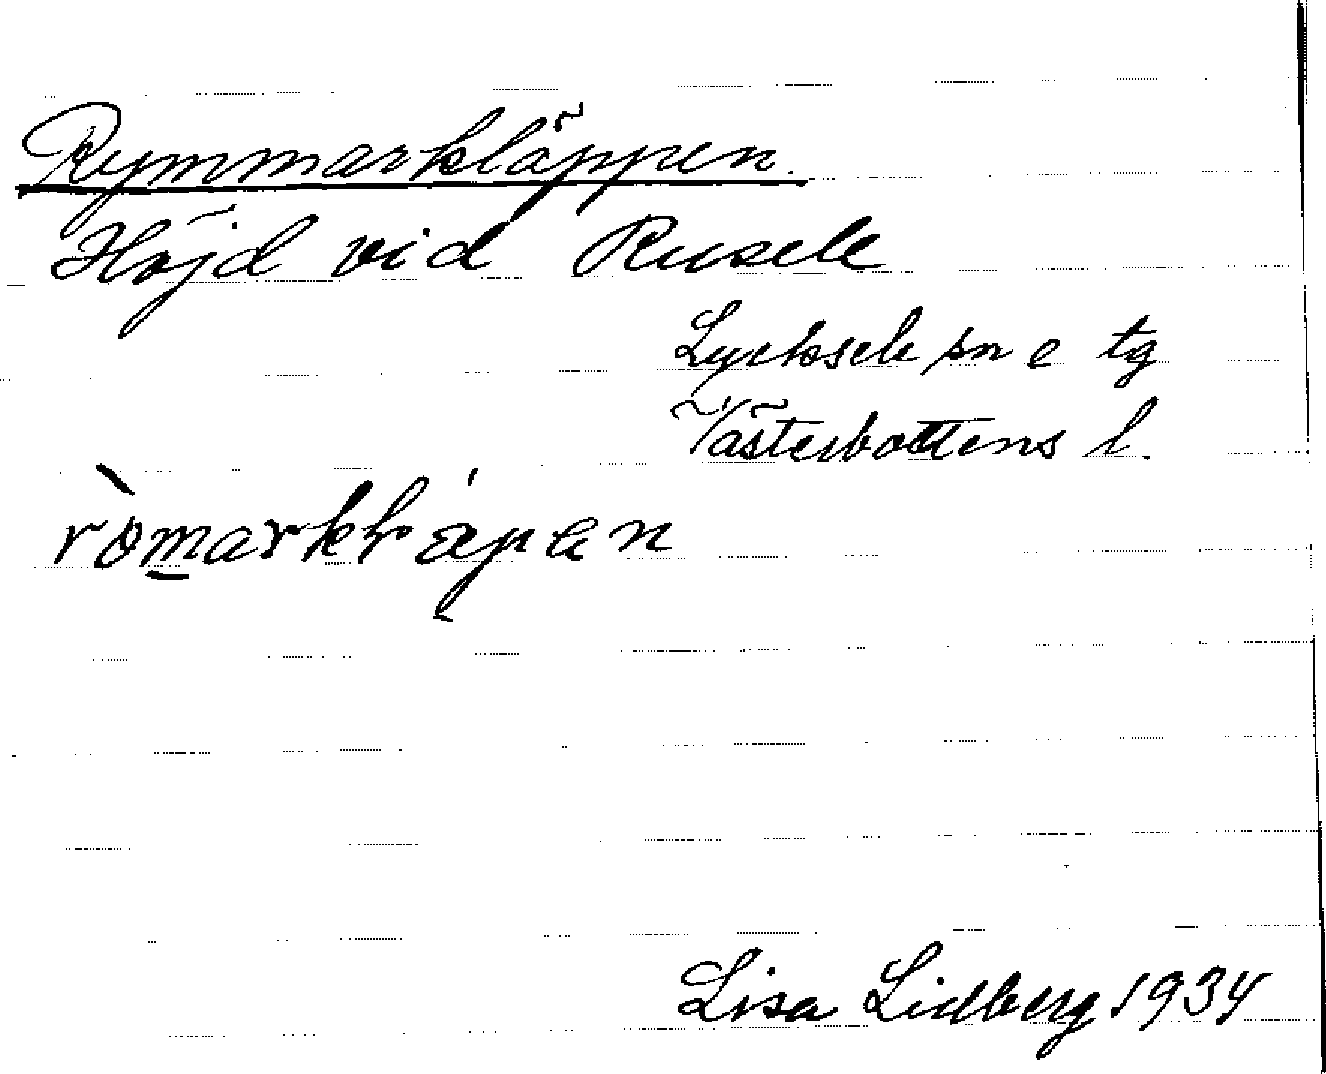 Rymmarkläppen.
Höjd vid Rusele
Lycksele sn o tg
Västerbottens l.
Lisa Lidberg 1934